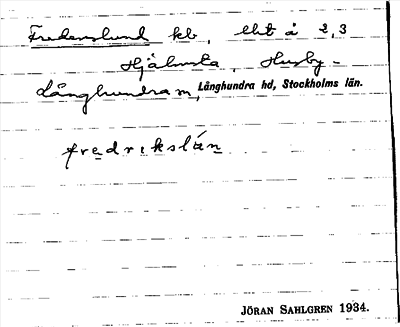 Fredenslund kb, Ebl å 2,3
Hjälmsta, Husby-
Långhundra sn, Långhundra hd, Stockholms län.
fredrikslán
JÖRAN SAHLGREN 1934.